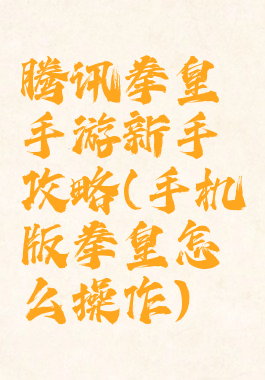 腾讯拳皇
手游新手
攻略(手机
版拳皇怎
么操作)